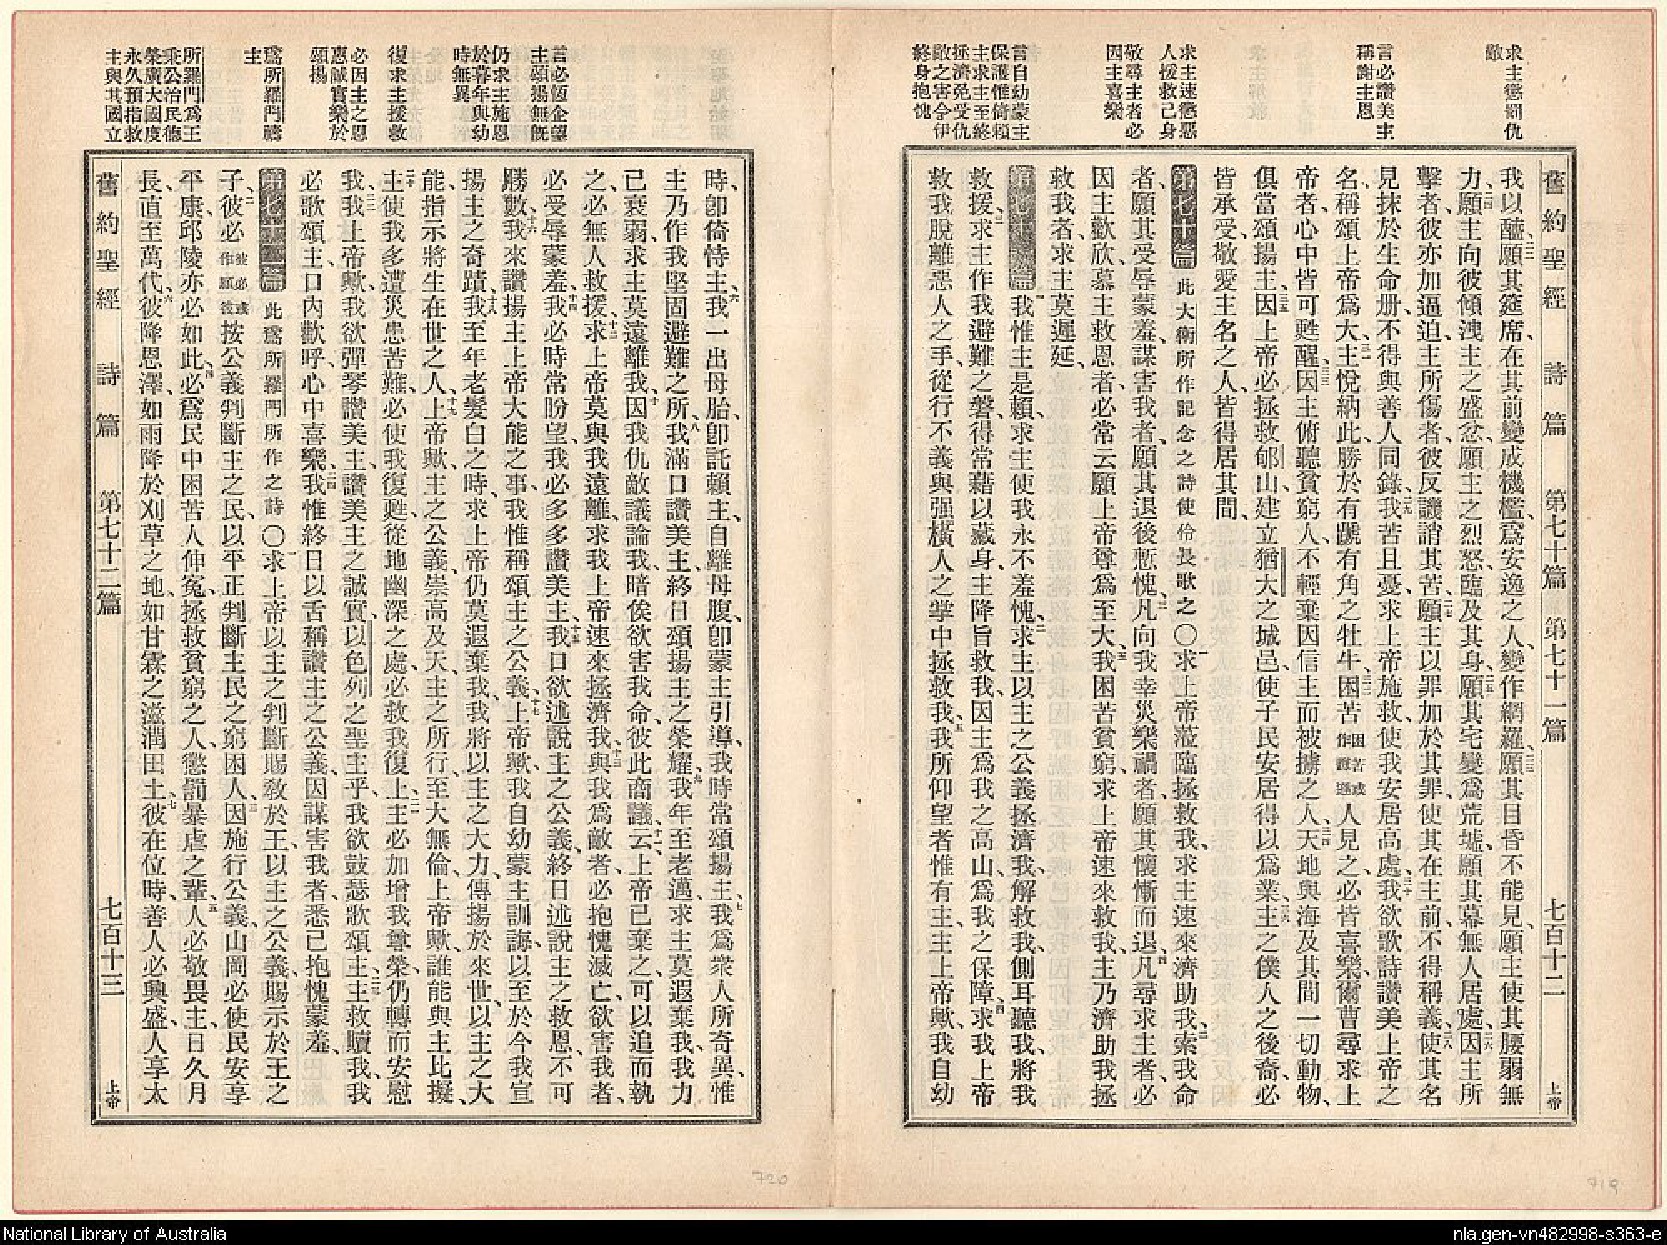 求主懲罰仇
敵
言必讚美主
稱謝主恩
求主速懲惡
人援救己身
敬尋主者必
因主喜樂
言自幼蒙主
保護惟倚賴
主求主至終
拯濟免受仇
敵之害令伊
終身抱愧
舊約聖經 詩篇 第七十篇 第七十一篇 七百十二 上帝
我以醯、願其筵席、在其前變成機檻、爲安逸之人、變作網羅、願其目昏不能見、願主使其腰弱無
力、願主向彼傾洩主之盛忿、願主之烈怒、臨及其身、願其宅變爲荒墟、願其幕無人居處、因主所
擊者、彼亦加逼迫、主所傷者、彼反譏誚其苦、願主以罪加於其罪、使其在主前、不得稱義、使其名
見抹於生命册、不得與善人同錄、我苦且憂、求上帝施救、使我安居高處、我欲歌詩讚美上帝之
名、稱頌上帝爲大、主悅納此、勝於有蹏有角之牡牛、困苦困苦或作謙遜人見之、必皆喜樂、爾曹尋求上
帝者、心中皆可甦醒、因主俯聽貧窮人、不輕棄因信主而被擄之人、天地與海、及其間一切動物、
俱當頌揚主、因上帝必拯救郇山、建立猶大之城邑、使子民安居、得以爲業、主之僕人之後裔、必
皆承受、敬愛主名之人、皆得居其間、
第七十篇 此大衛所作記念之詩使伶長歌之〇求上帝蒞臨拯救我、求主速來濟助我、索我命
者、願其受辱蒙羞、謀害我者、願其退後慙愧、凡向我幸災樂禍者、願其懷慚而退、凡尋求主者、必
因主歡欣、慕主救恩者、必常云、願上帝尊爲至大、我困苦貧窮、求上帝速來救我、主乃濟助我拯
救我者、求主莫遲延、
第七十一篇 我惟主是賴、求主使我永不羞愧、求主以主之公義拯濟我、解救我、側耳聽我、將我
救援、求主作我避難之磐、得常藉以藏身、主降旨救我、因主爲我之高山、爲我之保障、求我上帝
救我脫離惡人之手、從行不義與强橫人之掌中拯救我、我所仰望者惟有主、主上帝歟、我自幼
言必恆企望
主頌揚無旣
仍求主施恩
於暮年與幼
時無異
復求主援救
必因主之恩
惠誠實樂於
頌揚
爲所羅門禱
主
所羅門爲王
秉公治民德
榮廣大國度
永久預指救
主與其國立
時、卽倚恃主、我一出母胎、卽託賴主、自離母腹、卽蒙主引導、我時常頌揚主、我爲衆人所奇異、惟
主乃作我堅固避難之所、我滿口讚美主、終日頌揚主之榮耀、我年至老邁、求主莫遐棄我、我力
已衰弱、求主莫遠離我、因我仇敵議論我、暗俟欲害我命、彼此商議云、上帝已棄之、可以追而執
之、必無人救援、求上帝莫與我遠離、求我上帝速來拯濟我、與我爲敵者、必抱愧滅亡、欲害我者、
必受辱蒙羞、我必時常盼望、我必多多讚美主、我口欲述說主之公義、終日述說主之救恩、不可
勝數、我來讚揚主上帝大能之事、我惟稱頌主之公義、上帝歟、我自幼蒙主訓誨、以至於今、我宣
揚主之奇蹟、我至年老髮白之時、求上帝仍莫遐棄我、我將以主之大力、傳揚於來世、以主之大
能、指示將生在世之人、上帝歟、主之公義、崇高及天、主之所行、至大無倫、上帝歟、誰能與主比擬、
主使我多遭災患苦難、必使我復甦、從地幽深之處、必救我復上、主必加增我尊榮、仍轉而安慰
我、我上帝歟、我欲彈琴讚美主、讚美主之誠實、以色列之聖主乎、我欲鼓瑟歌頌主、主救贖我、我
必歌頌主、口內歡呼、心中喜樂、我惟終日以舌稱讚主之公義、因謀害我者、悉已抱愧蒙羞、
第七十二篇 此爲所羅門所作之詩〇求上帝以主之判斷賜敎於王、以主之公義、賜示於王之
子、彼必彼必或作願彼按公義判斷主之民、以平正判斷主民之窮困人、因施行公義、山岡必使民安享
平康、邱陵亦必如此、必爲民中困苦人伸冤、拯救貧窮之人、懲罰暴虐之輩、人必敬畏主、日久月
長、直至萬代、彼降恩澤、如雨降於刈草之地、如甘霖之滋潤田土、彼在位時、善人必興盛、人享太
舊約聖經 詩篇 第七十二篇 七百十三 上帝
720
719
National Library of Australia
nla.gen-vn482998-s363-e